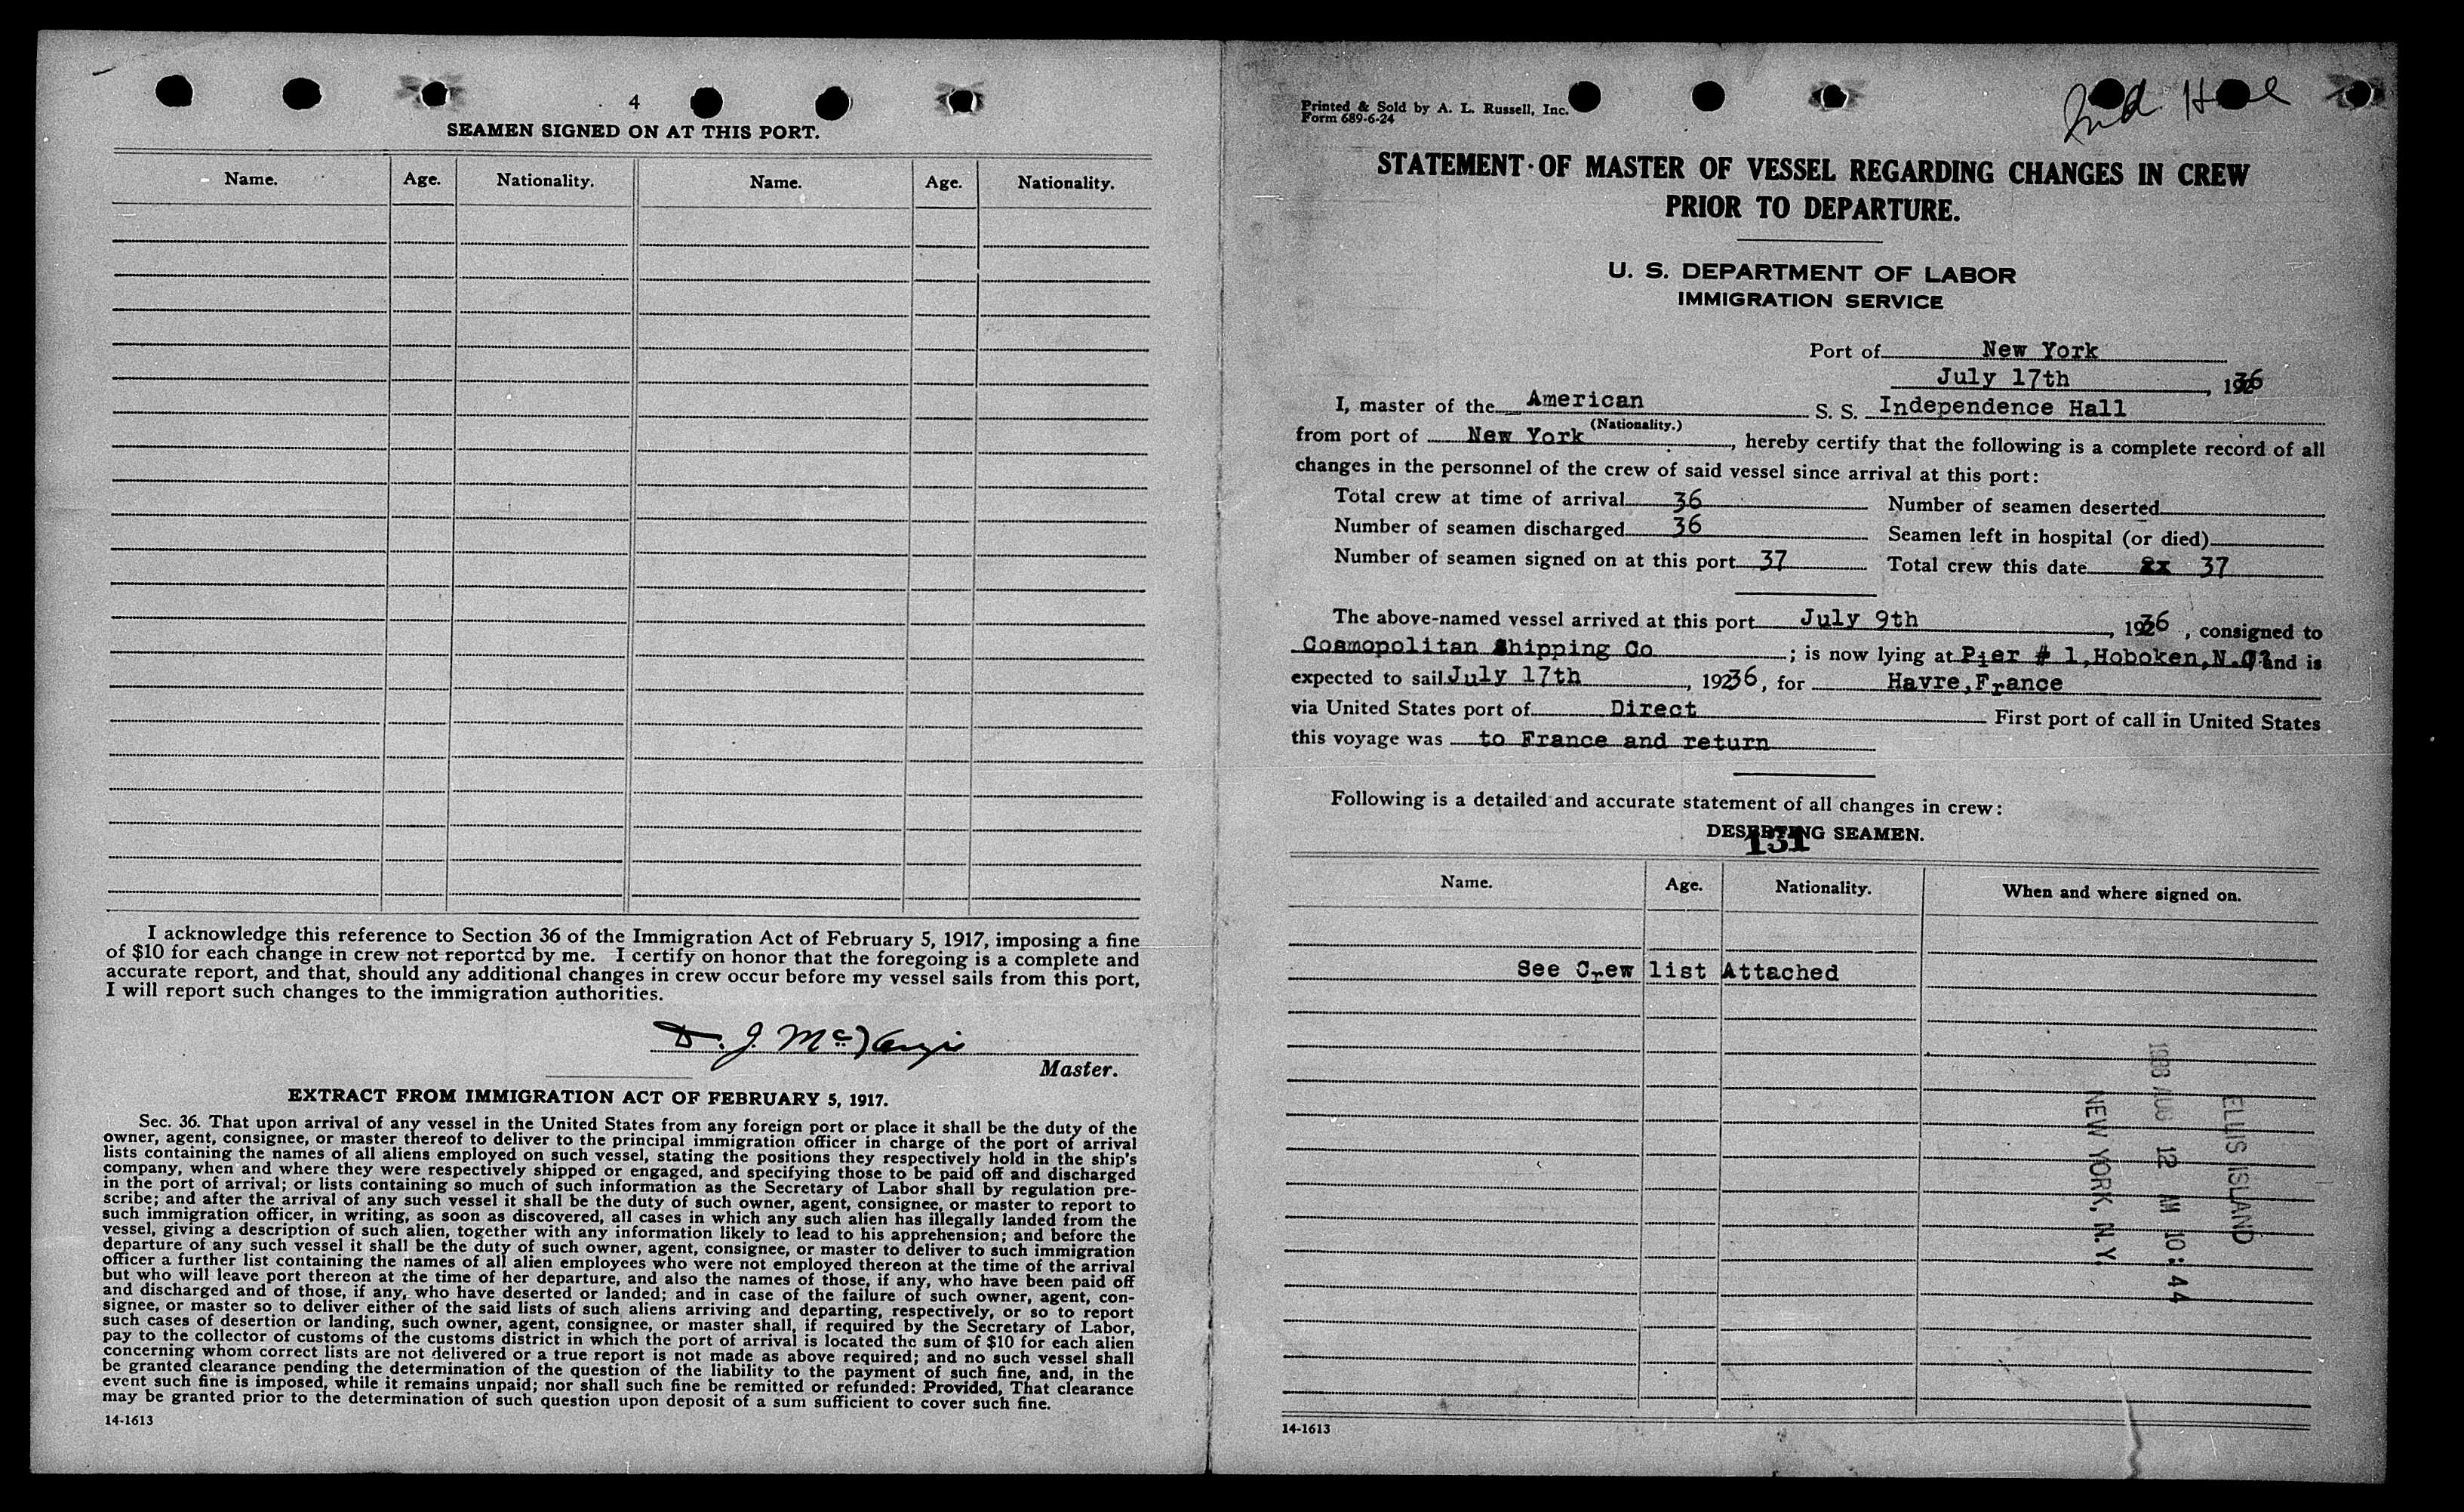 4
SEAMEN SIGNED ON AT THIS PORT.
Name. Age. Nationality. Name. Age. Nationality.
I acknowledge this reference to Section 36 of the Immigration Act of February 5, 1917, imposing a fine
of $10 for each change in crew not reported by me. I certify on honor that the foregoing is a complete and
accurate report, and that, should any additional changes in crew occur before my vessel sails from this port,
I will report such changes to the immigration authorities.
D. J. Mc
Master.
EXTRACT FROM IMMIGRATION ACT OF FEBRUARY 5, 1917.
Sec. 36. That upon arrival of any vessel in the United States from any foreign port or place it shall be the duty of the
owner, agent, consignee, or master thereof to deliver to the principal immigration officer in charge of the port of arrival
lists containing the names of all aliens employed on such vessel, stating the positions they respectively hold in the ship's
company, when and where they were respectively shipped or engaged, and specifying those to be paid off and discharged
in the port of arrival; or lists containing so much of such information as the Secretary of Labor shall by regulation pre-
scribe; and after the arrival of any such vessel it shall be the duty of such owner, agent, consignee, or master to report to
such immigration officer, in writing, as soon as discovered, all cases in which any such alien has illegally landed from the
vessel, giving a description of such alien, together with any information likely to lead to his apprehension; and before the
departure of any such vessel it shall be the duty of such owner, agent, consignee, or master to deliver to such immigration
officer a further list containing the names of all alien employees who were not employed thereon at the time of the arrival
but who will leave port thereon at the time of her departure, and also the names of those, if any, who have been paid off
and discharged and of those, if any, who have deserted or landed; and in case of the failure of such owner, agent, con-
signee, or master so to deliver either of the said lists of such aliens arriving and departing, respectively, or so to report
such cases of desertion or landing, such owner, agent, consignee, or master shall, if required by the Secretary of Labor,
pay to the collector of customs of the customs district in which the port of arrival is located the sum of $10 for each alien
concerning whom correct lists are not delivered or a true report is not made as above required; and no such vessel shall
be granted clearance pending the determination of the question of the liability to the payment of such fine, and, in the
event such fine is imposed, while it remains unpaid; nor shall such fine be remitted or refunded: Provided, That clearance
may be granted prior to the determination of such question upon deposit of a sum sufficient to cover such fine.
14-1613
Printed & Sold by A. L. Russell, Inc.
Form 689-6-24
Ind Hall
STATEMENT OF MASTER OF VESSEL REGARDING CHANGES IN CREW
PRIOR TO DEPARTURE.
U. S. DEPARTMENT OF LABOR
IMMIGRATION SERVICE
Port of New York
July 17th, 1936
I, master of the American S. S. Independence Hall
(Nationality.)
from port of New York, hereby certify that the following is a complete record of all
changes in the personnel of the crew of said vessel since arrival at this port:
Total crew at time of arrival 36 Number of seamen deserted
Number of seamen discharged 36 Seamen left in hospital (or died)
Number of seamen signed on at this port 37 Total crew this date 37
The above-named vessel arrived at this port July 9th, 1936, consigned to
Cosmopolitan Shipping Co; is now lying at Pier # 1, Hoboken, N.J. and is
expected to sail July 17th, 1936, for Havre, France
via United States port of Direct First port of call in United States
this voyage was to France and return
Following is a detailed and accurate statement of all changes in crew:
DESERTING SEAMEN.
131
Name. Age. Nationality. When and where signed on.
See Crew list Attached
ELLIS ISLAND
12 AM 10:44
NEW YORK, N.Y.
14-1613